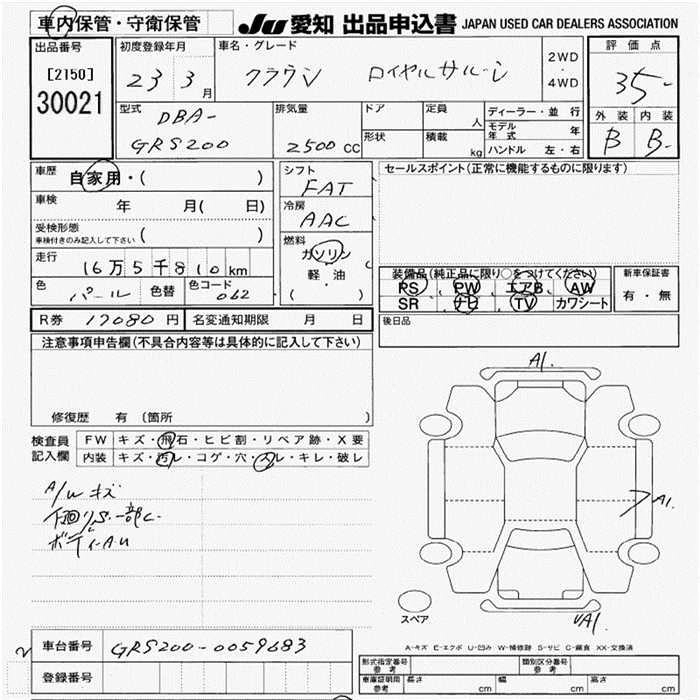 車内保管・守衛保管
JU 愛知 出品申込書 JAPAN USED CAR DEALERS ASSOCIATION
出品番号
[2150]
30021
初度登録年月
23 3月
車名・グレード
クラウン ロイヤルサルーン
2WD
・
4WD
評価点
35
外装 内装
B B-
型式
DBA-
GRS200
排気量
2500 CC
ドア
形状
定員 人
積載 kg
ディーラー・並行
モデル年式 年
ハンドル 左・右
車歴 自家用・( )
車検 年 月( 日)
受検形態
車検付きのみ記入して下さい ( )
走行 16万5千810km
色 パール 色替 色コード 062
シフト
FAT
冷房
AAC
燃料
ガソリン
軽・油
( )
セールスポイント(正常に機能するものに限ります)
装備品(純正品に限り○をつけてください)
PS PW エアB AW
SR ナビ TV カワシート
新車保証書
有・無
後日品
R券 17080円 名変通知期限 月 日
注意事項申告欄(不具合内容等は具体的に記入して下さい)
修復歴 有 〔箇所 〕
検査員記入欄
FW キズ・飛石・ヒビ割・リペア跡・X要
内装 キズ・汚レ・コゲ・穴・スレ・キレ・破レ
A/W キズ
下廻りS.一部C.
ボディA.U
A1.
A1.
UA1.
スペア
A-キズ E-エクボ U-凹み W-補修跡 S-サビ C-腐食 XX-交換済
車台番号 GRS200-0059683
登録番号
2
形式指定番号 参考
類別区分番号 参考
車庫証明用 参考 長さ cm 幅 cm 高さ cm